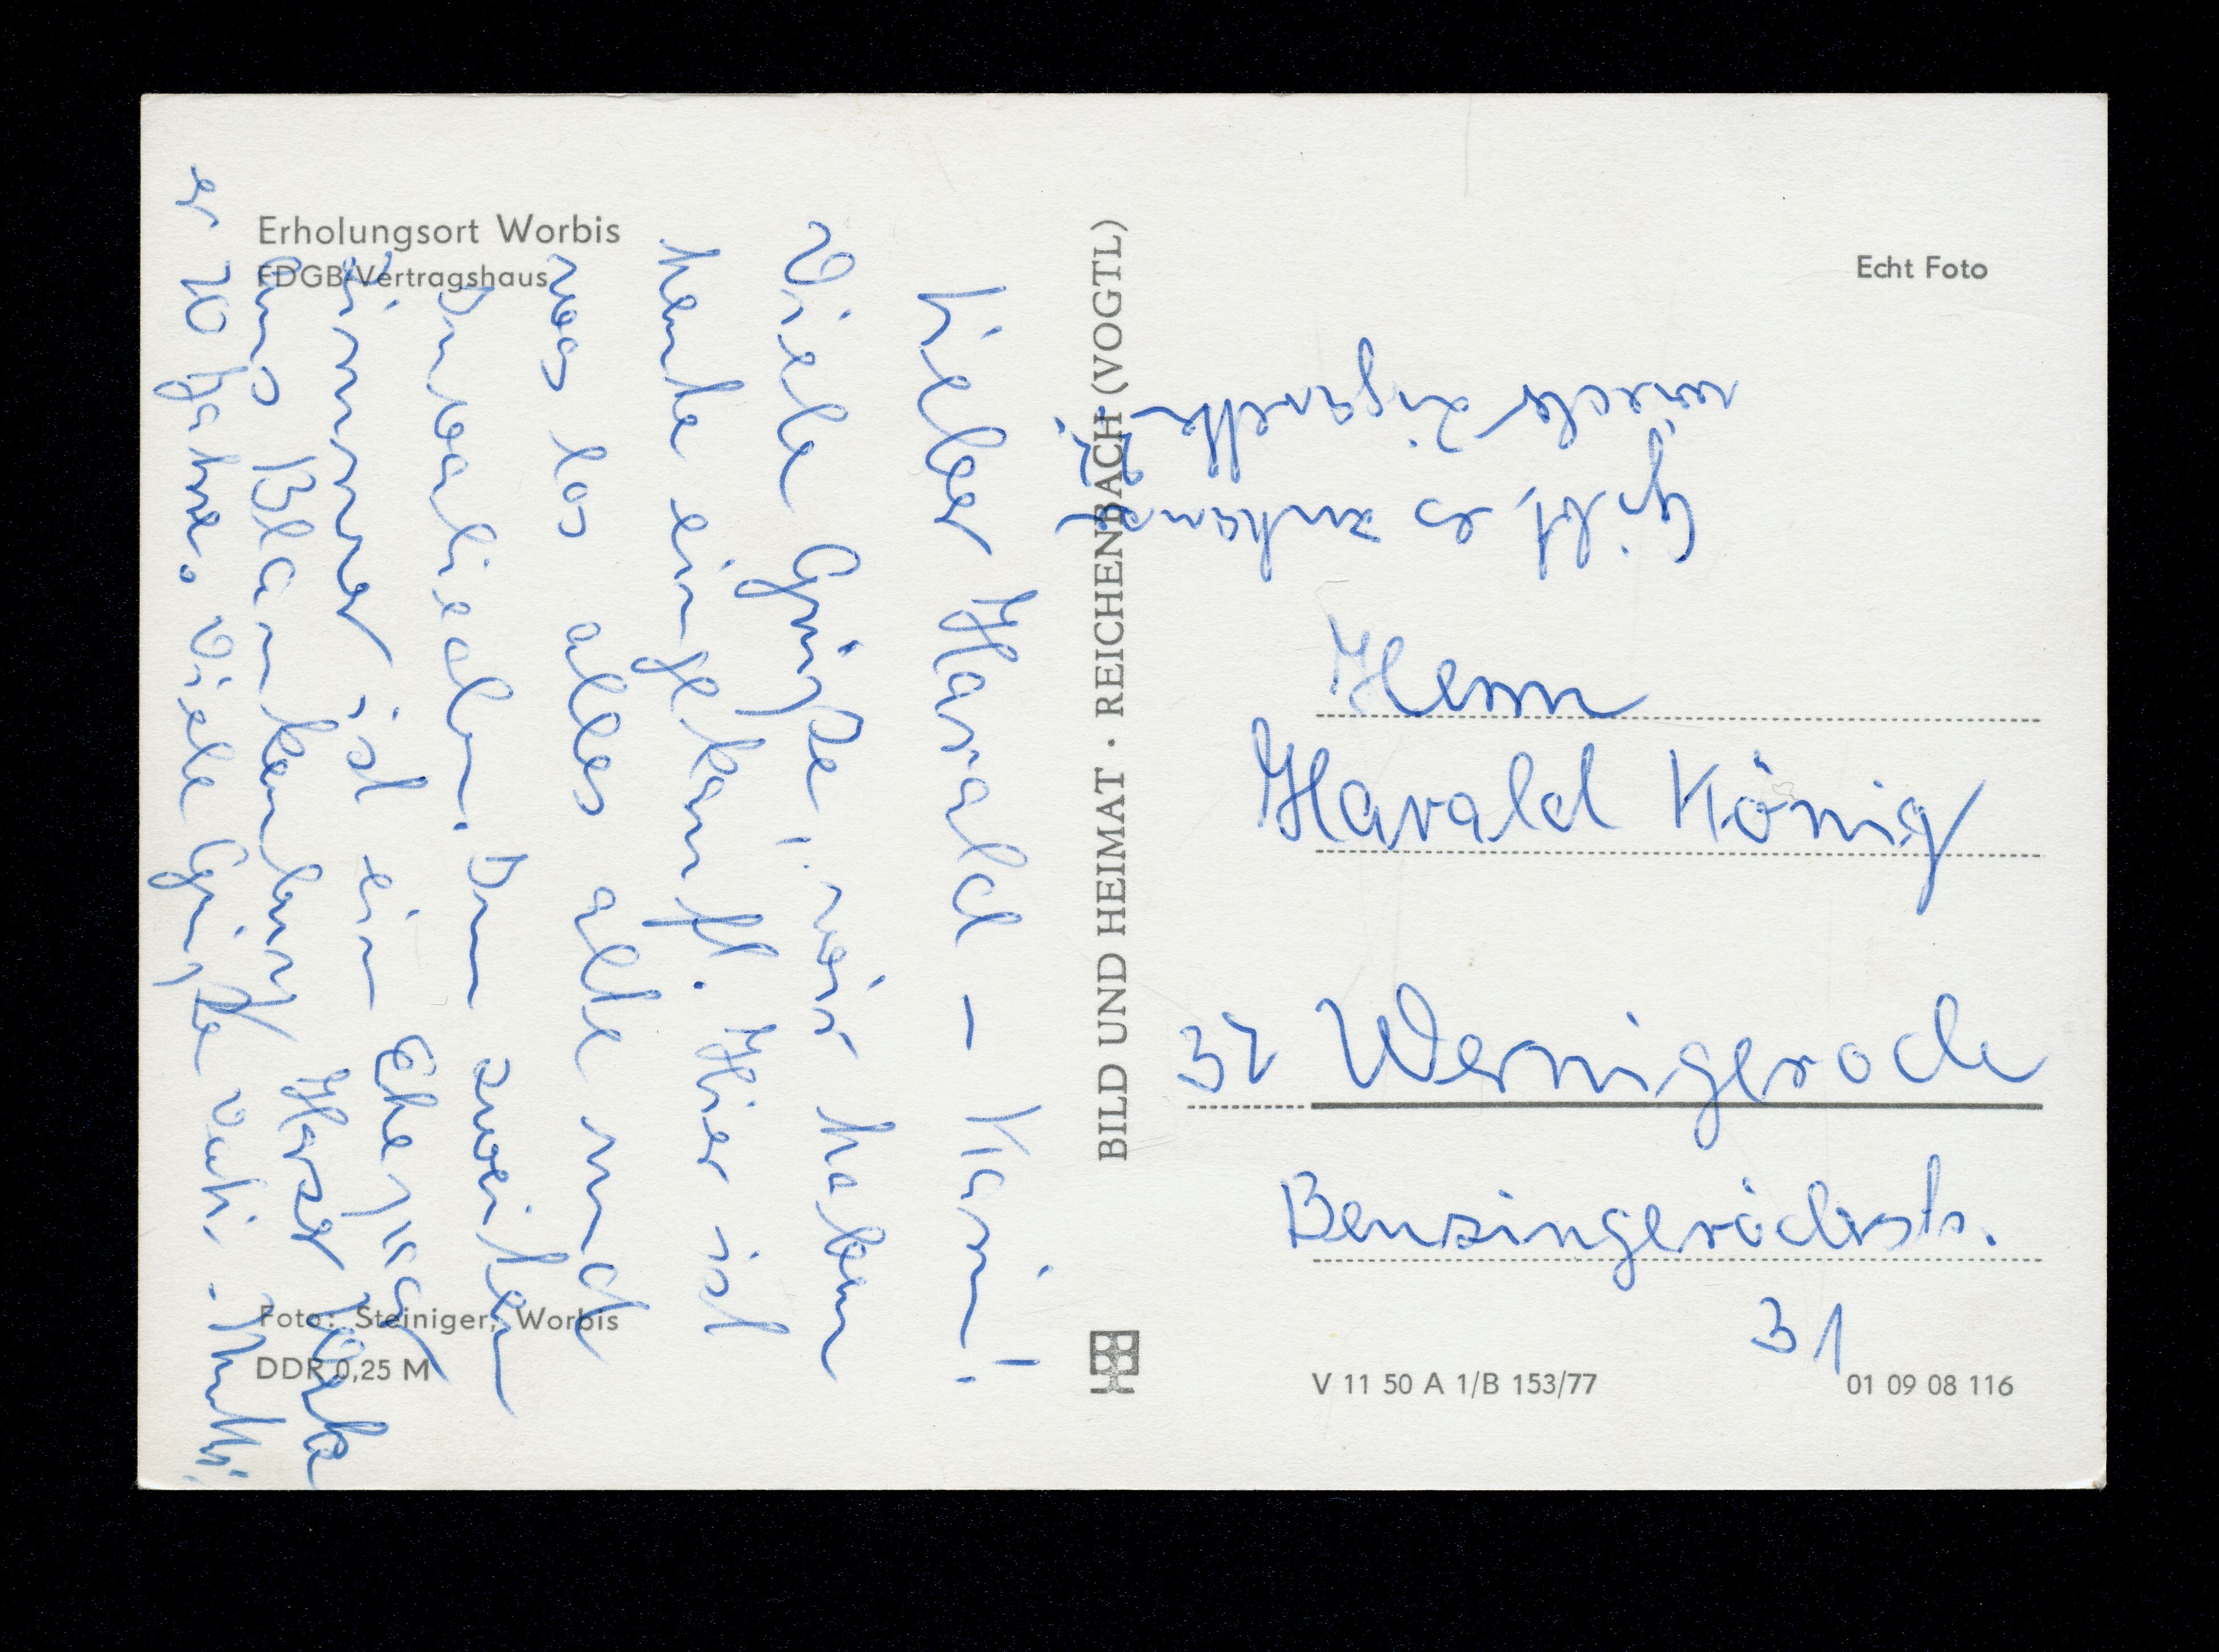 Erholungsort Worbis
FDGB-Vertragshaus
Lieber Harald – Kari!
Viele Grüße! wir haben
heute eingekauft. Hier ist
was los alles alte und
Invaliedn. Im zweiten
Zimmer ist ein Ehepaar
aus Blankenburg Harzer Werke
er 70 Jahre. Viele Grüße Vati. Mutti.
Foto: Steiniger, Worbis
DDR 0,25 M
BILD UND HEIMAT · REICHENBACH (VOGTL)
Echt Foto
Gibt es zuhause
wieder Zigaretten
??
Herrn
Harald König
37 Wernigerode
Benzingeröderstr.
31
V 11 50 A 1/B 153/77
01 09 08 116